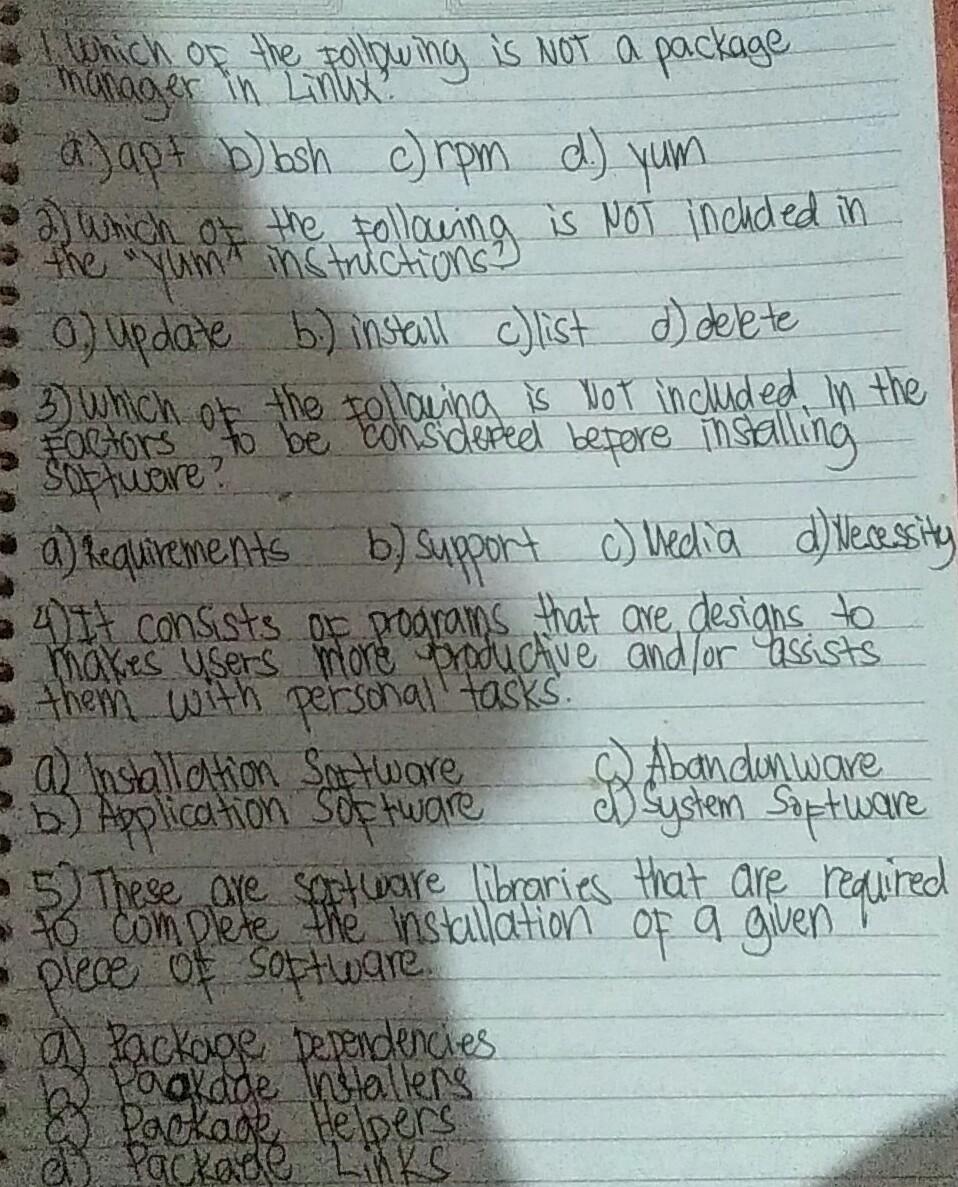 1. Which of the following is NOT a package
manager in Linux?
a.) apt b) bsh c) rpm d.) yum
2) Which of the following is NOT included in
the "yum" instructions?
a.) update b.) install c) list d) delete
3) Which of the following is NOT included in the
factors to be considered before installing
software?
a) Requirements b) Support c) Media d) Necessity
4) It consists of programs that are designs to
makes users more productive and/or assists
them with personal tasks.
a) Installation Software c) Abandonware
b) Application Software d) System Software
5) These are software libraries that are required
to complete the installation of a given
piece of software.
a) Package Dependencies
b) Package Installers
c) Package Helpers
d) Package Links